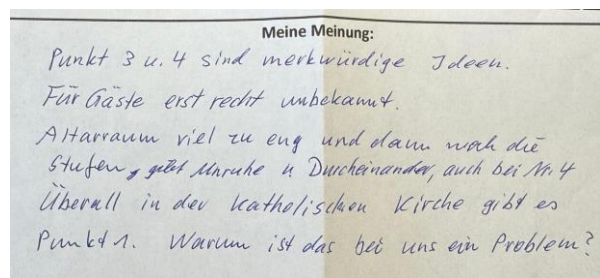 Meine Meinung:
Punkt 3 u. 4 sind merkwürdige Ideen.
Für Gäste erst recht unbekannt.
Altarraum viel zu eng und dann noch die
Stufen, gibt Unruhe u Durcheinander, auch bei Nr. 4
Überall in der katholischen Kirche gibt es
Punkt 1. Warum ist das bei uns ein Problem?